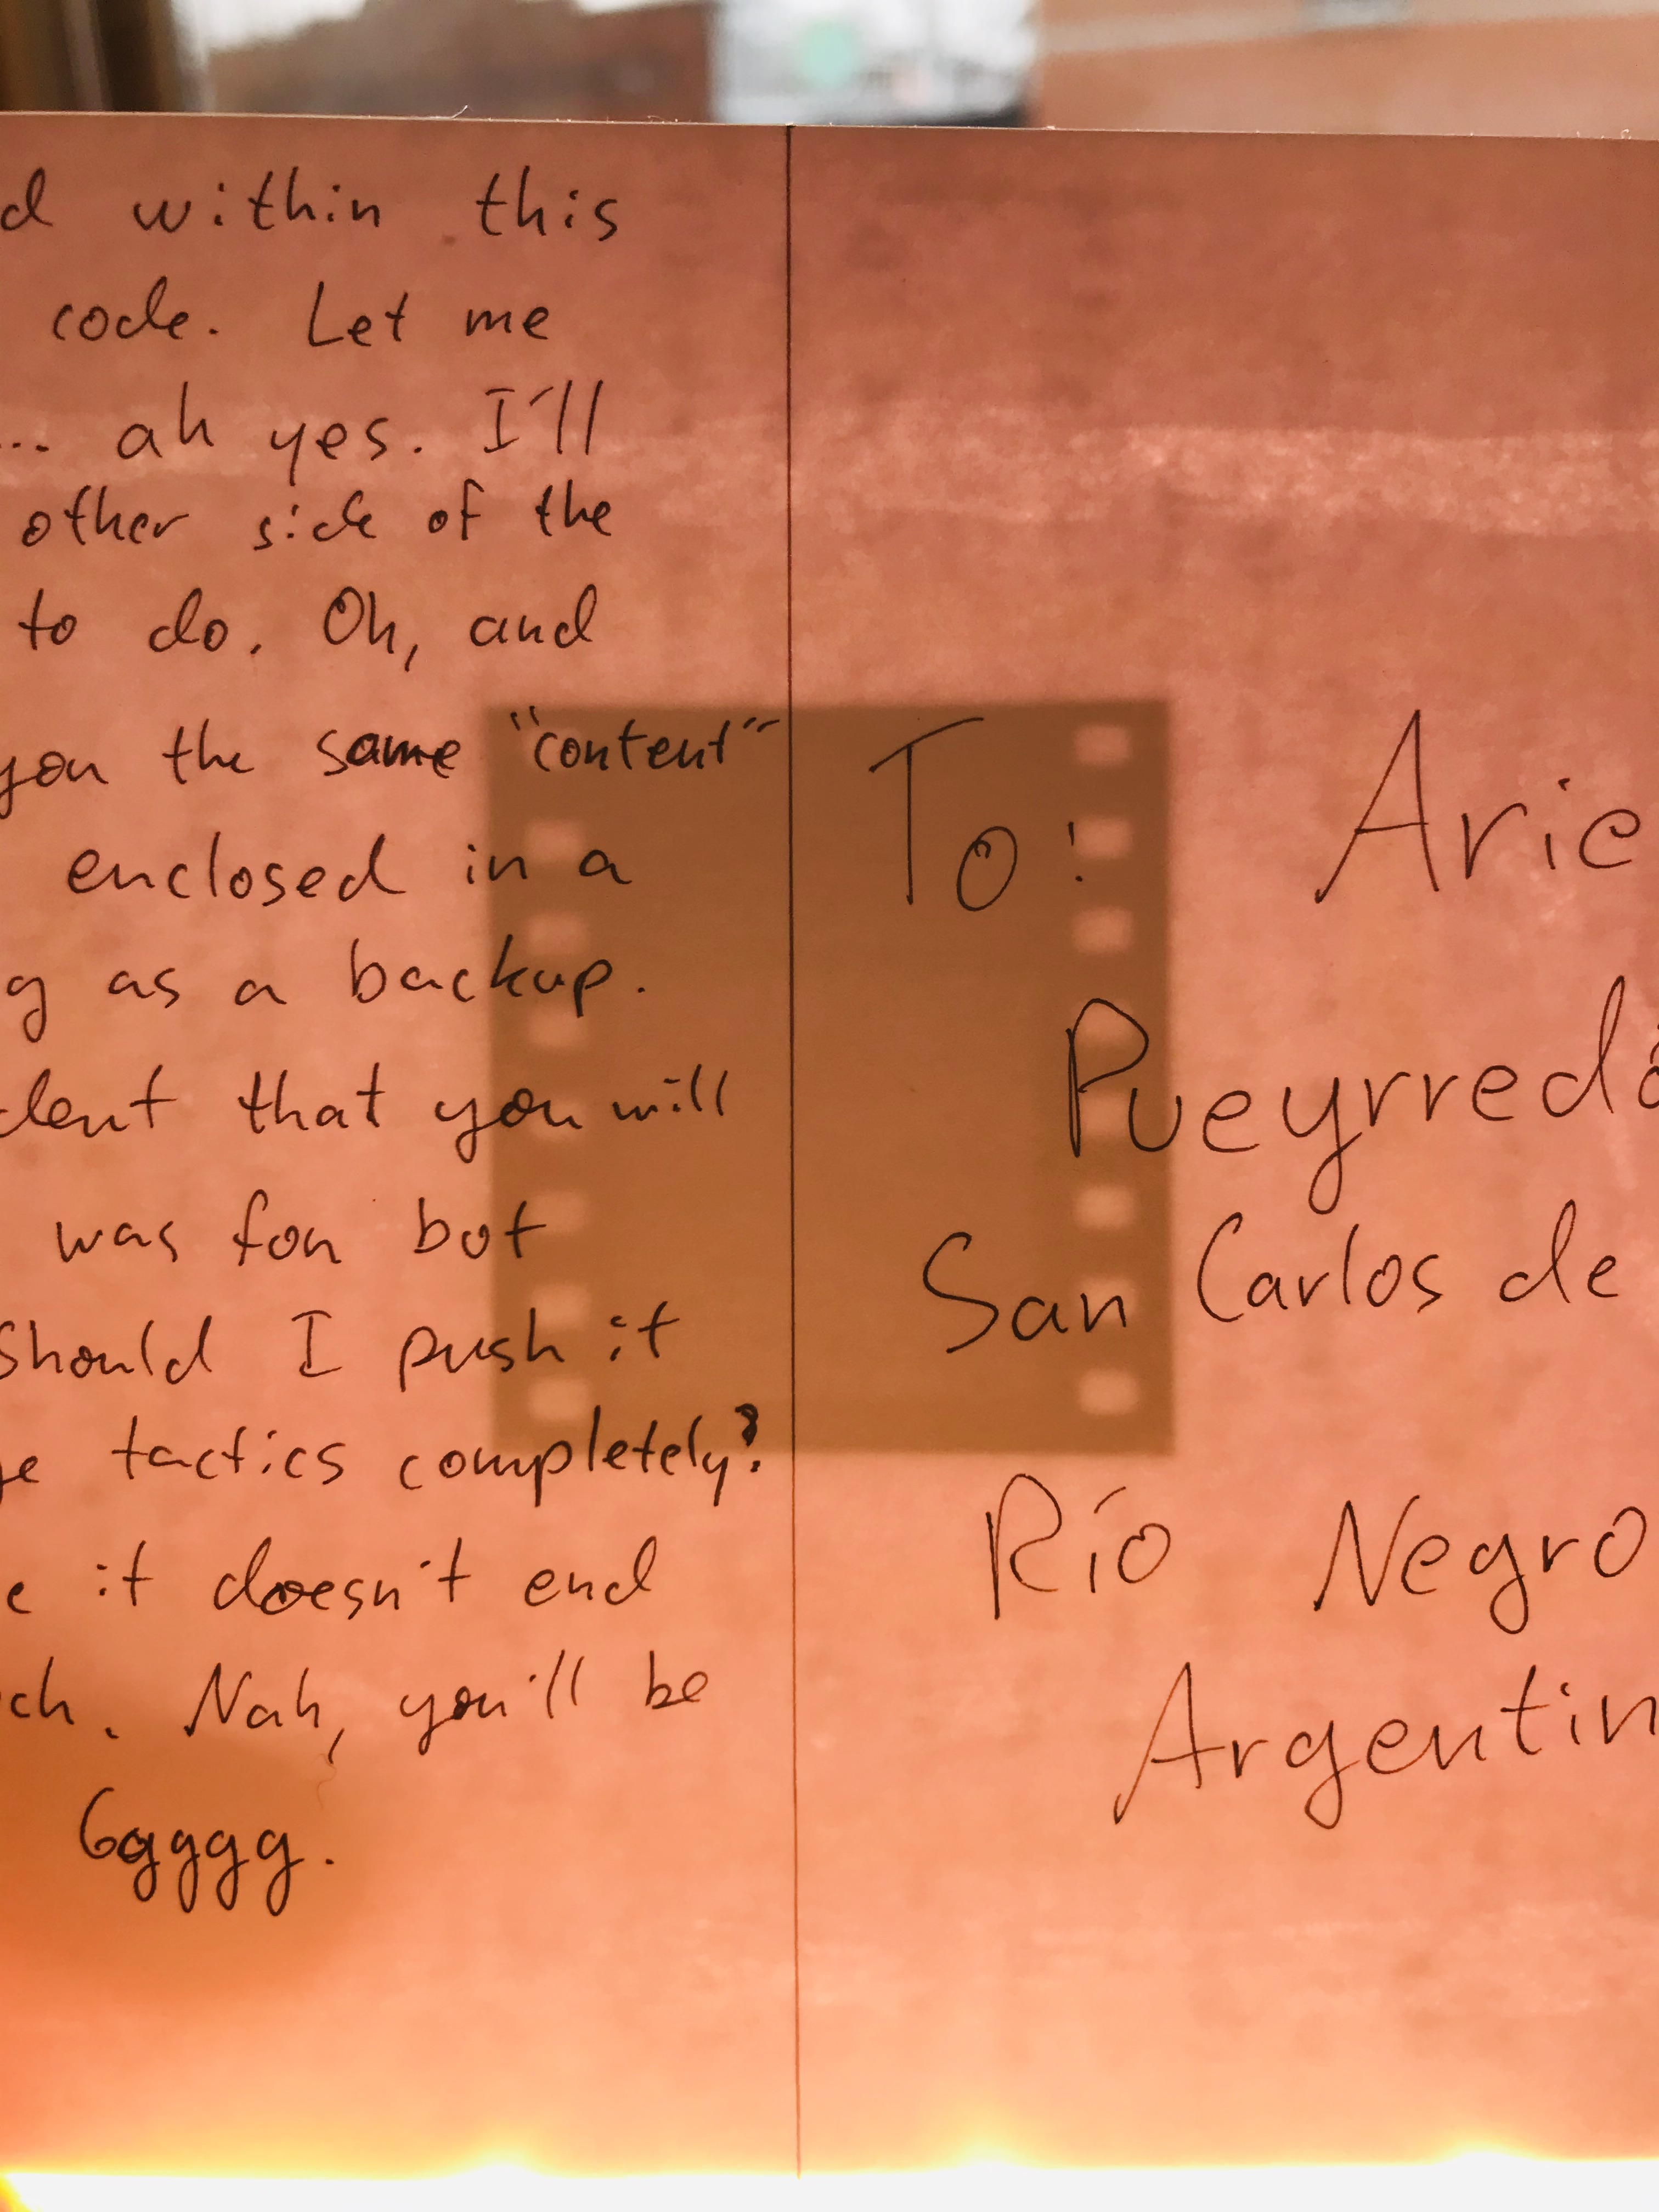 within this
code. Let me
... ah yes. I'll
other side of the
to do. Oh, and
you the same "content"
enclosed in a
as a backup.
that you will
was fon bot
should I push it
tactics completely?
it doesn't end
Nah, you'll be
Ggggg.
To: Arie
Pueyrredó
San Carlos de
Río Negro
Argentin